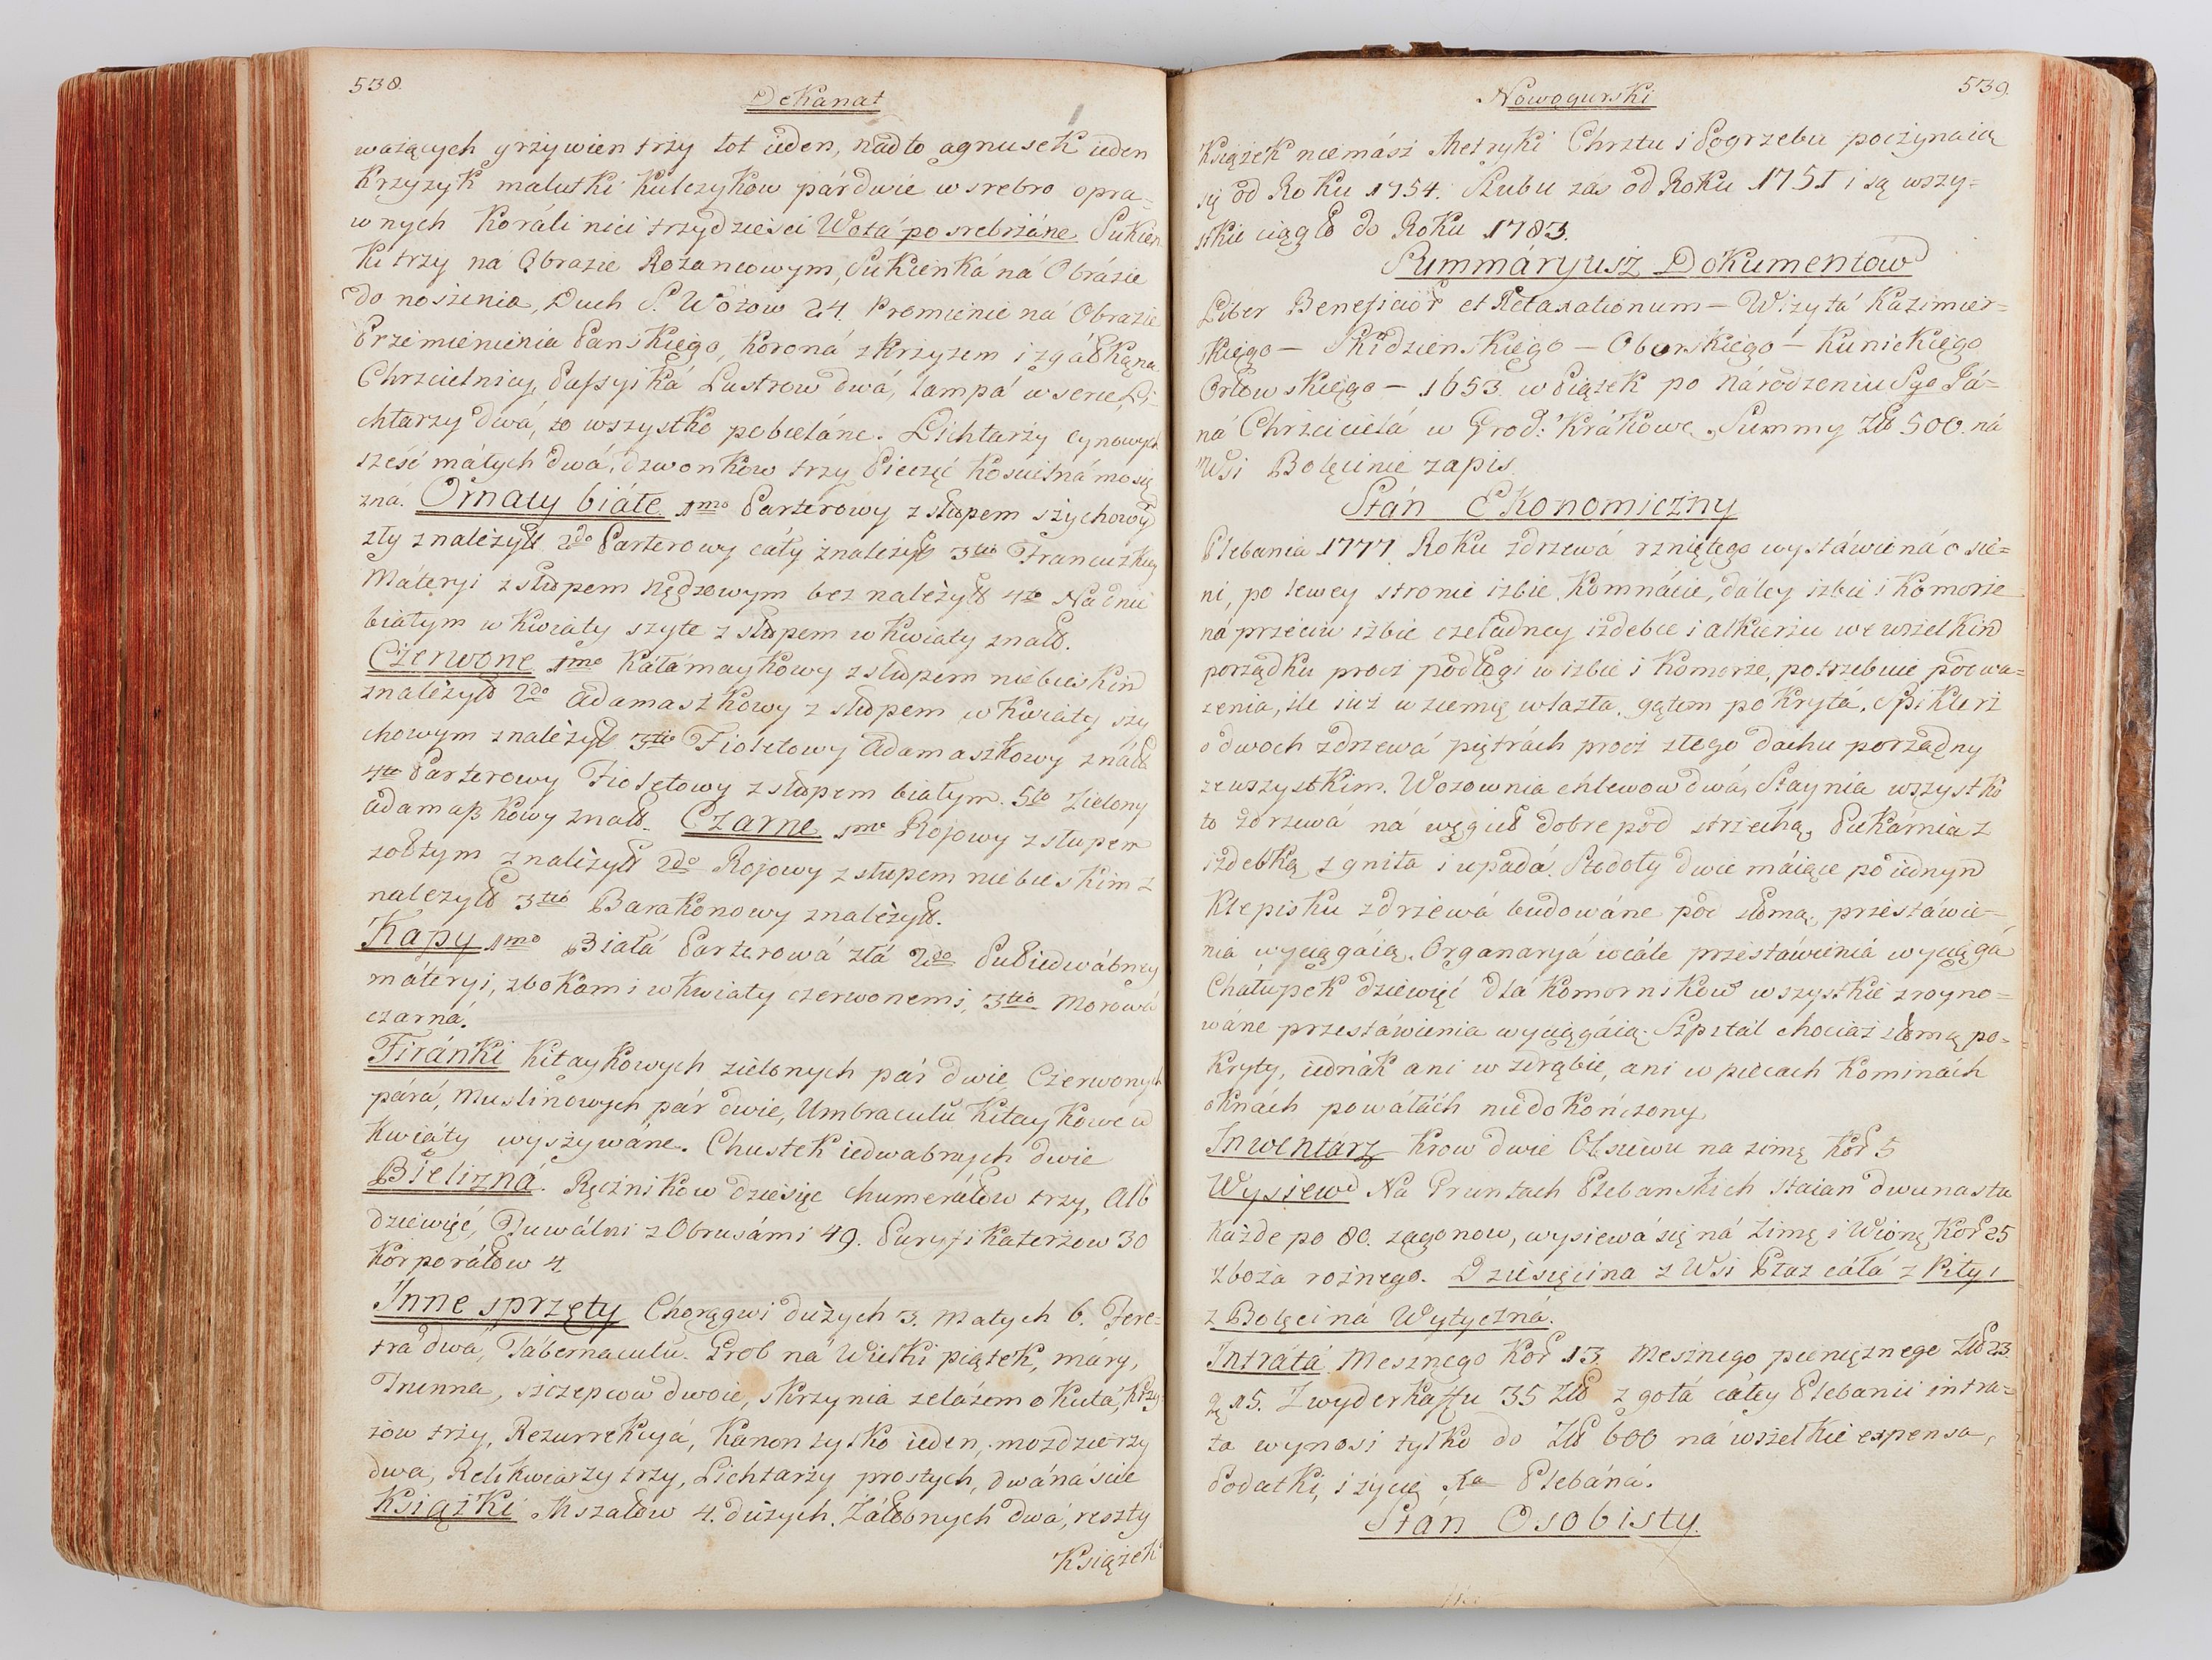 538.
Dekanat
ważących grzywien trzy łot ieden, nadto agnusek ieden
Krzyzyk malutki Kulczykow pár dwie w srebro opra=
wnych Koráli nici trzydzieści Wotá posrebrzáne Sukien
ki trzy na Obrazie Rożancowym, Sukienká ná Obrázie
do noszenia, Duch S. Wotow 24. Promienie ná Obrazie
Przemienienia Panskiego, Koroná z krzyżem i z gáłką na
Chrzcielnicy, Passyiká Lustrow dwá, lampá w serce, Li-
chtarzy dwá, to wszystko pobieláne. Lichtarzy cynowych
sześć máłych dwá, dzwonkow trzy Pieczęć Kościelná mosię
zná. Ornaty białe 1mo Parterowy z słupem szychowym
zły z należyt: 2do Parterowy cáły z należyt: 3tio Francuzkiey
Máteryi z słupem Nędzowym bez należyt: 4to Na dnie
białym w kwiaty szyte z słupem w kwiaty z nal:
Czerwone 1mo Káłámaykowy z słupem niebieskim
z należyt: 2do Adamaszkowy z słupem w kwiaty szy
chowym z należyt: 3tio Fioletowy Adamaszkowy z nál:
4to Parterowy Fioletowy z słupem białym. 5to Zielony
adamaszkowy z nal: Czarne 1mo Rojowy z słupem
żołtym z należyt: 2do Rojowy z słupem niebieskim z
należyt: 3tio Barakonowy z należyt:
Kapy 1mo Białá Parterowá złá 2do Pułiedwábney
máteryi, z bokami w kwiaty czerwonemi, 3tio Morowá
czarná.
Firánki Kitaykowych zielonych pár dwie, Czerwonych
párá, Muslinowych pár dwie, Umbraculu Kitaykowe w
Kwiáty wyszywáne. Chustek iedwabnych dwie
Bielizná. Ręcznikow dziesięc humeráłow trzy, Alb
dziewięć, Tuwálni z Obrusámi 49. Puryfikaterzow 30
Korporáłow 4.
Inne sprzęty Chorągwi dużych 3. małych 6. Fere=
trá dwá, Tábernaculu. Grob ná Wielki piątek, máry,
Trunna, szczepcow dwoie, skrzynia żelázem okutá, krzy=
żow trzy, Rezurrekcyá, Kanon tylko ieden, mozdzierzy
dwa, Relikwiarzy trzy, Lichtarzy prostych, dwánáście
Książki Mszałow 4. dużych. Záłobnych dwá, reszty
Książek

Nowogurski
539.
Książek niemász Metryki Chrztu i Pogrzebu poczynaią
się od Roku 1754. Szlubu zás od Roku 1751 i są wszy=
stkie ciągło do Roku 1783.
Summáryusz Dokumentow
Liber Beneficior et Retaxationum – Wizytá Kazimier=
skiego – Skidzienskiego – Oborskiego – Kunickiego
Orłowskiego – 1653. w Piątek po Národzeniu Sgo Já=
ná Chrzcicielá w Grod: Krákowe. Summy Zł 500. ná
Wsi Bolęcinie zapis.
Stán Ekonomiczny
Plebania 1777. Roku z drzewá rzniętego wystáwiená o sie=
ni, po lewey stronie izbie, Komnácie, dáley izbie i Komorze
ná przeciw izbie czeladney izdebce i alkierzu we wszelkim
porządku procz podłogi w izbie i Komorze, potrzebuie podwa=
żenia, ile iuż w ziemię wlazła, gątem pokrytá. Spiklerz
o dwoch z drzewá piętrách procz złego dachu porządny
ze wszystkim. Wozownia chlewow dwá, Staynia wszystko
to z drzewá ná węgieł dobre pod strzechą, Piekárnia z
izdebką zgniła i upadá. Stodoły dwie máiące po iednym
Klepisku z drzewá budowáne pod słomą, przestáwie=
nia wyciągáią. Organaryá wcále przestáwienia wyciągá
Chałupek dziewięć dlá Komornikow wszystkie zroyno=
wáne przestáwienia wyciągáią. Szpital chociaż słomą po=
kryty, iednák ani w zdrąbie, ani w piecach Kominách
oknách powáłách niedokończony
Inwentárz Krow dwie Obsiewu na zimę Kor: 5
Wysiew Na Gruntach Plebanskich staian dwunastu
każde po 80. zagonow, wysiewá się ná zimę i Wiosnę Kor: 25
zboża rożnego. Dziesięcina z Wsi Płaz cáłá z Pity i
z Bolęciná Wytyczná.
Intrátá Mesznego Kor: 13. Mesznego pieniężnego Zł 23.
gr 15. Z wyderkaffu 35 Zł z gołá cáłey Plebanii intra=
ta wynosi tylko do Zł 600 ná wszelkie expensa,
Podatki, i życie Xa Plebáná.
Stán Osobisty.